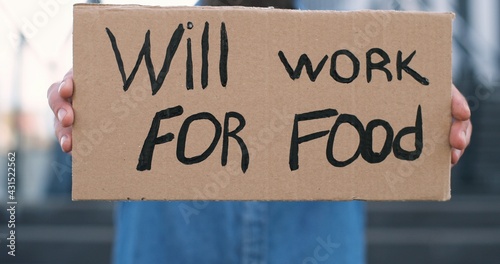 Will work
FOR Food
Adobe Stock | #431522562